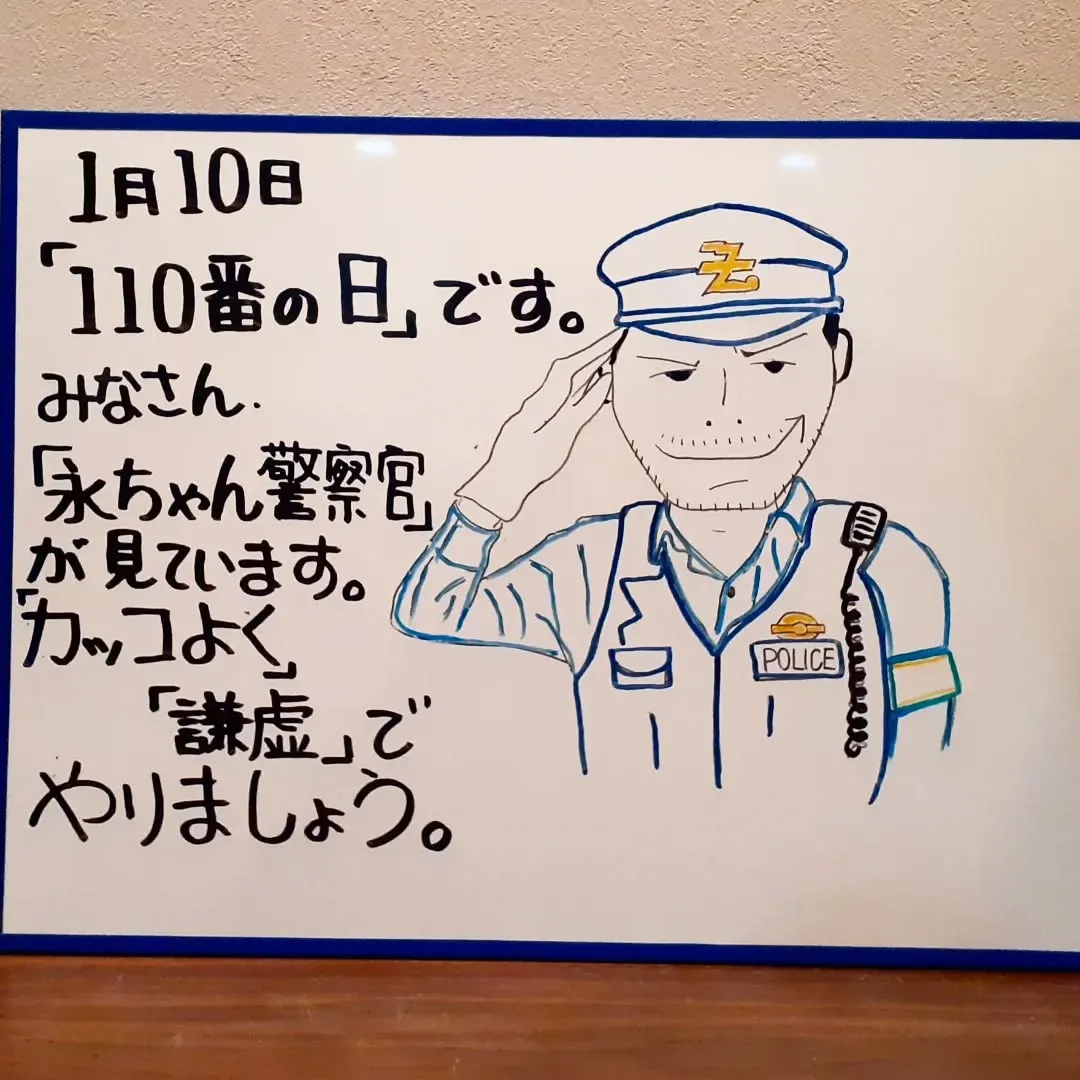 1月10日
「110番の日」です。
みなさん.
「永ちゃん警察官」
が見ています。
「カッコよく」
「謙虚」で
やりましょう。
POLICE